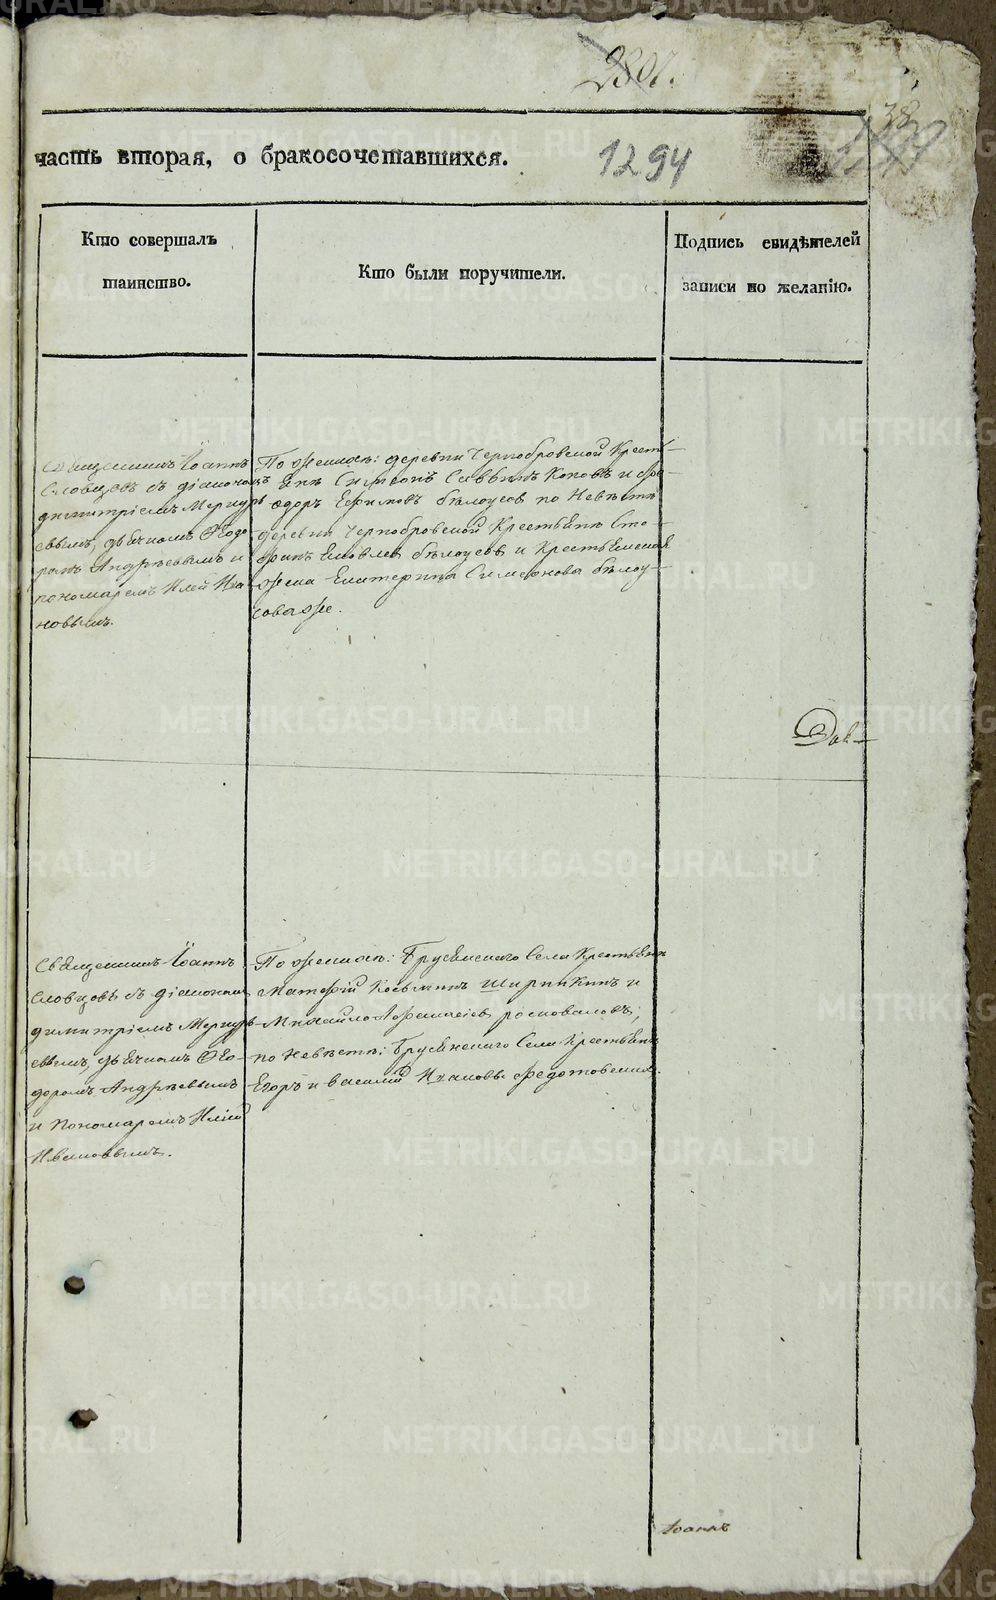 2801.
38
часть вторая, о бракосочетавшихся.
1294
Кто совершалъ
таинство.
Кто были поручители.
Подпись свидѣтелей
записи по желанію.
Священникъ Іоаннъ
Словцовъ съ діакономъ
Димитріемъ Меркурь
евымъ, дьячкомъ Ѳеодо
ромъ Андрѣевымъ и
пономаремъ Иліей Ива
новымъ.
По женихѣ: деревни Чернобровской Кресть
яне Симеонъ Саввинъ Коновъ и Ѳе
одоръ Ефимовъ бѣлоусов по Невѣстѣ
деревни Чернобровской Крестьянѣ
Яковлев бѣлоусов и Крестьянская
жена Екатерина Симеонова бѣлоу
сова же.
Священникъ Іоаннъ
Словцовъ съ діакономъ
Димитріемъ Меркурь
евымъ, дьячкомъ Ѳео
доромъ Андрѣевымъ
и пономаремъ Иліей
Ивановымъ.
По женихѣ: Брусянскаго Села Крестьяне
Матѳей Косьминъ Ширинкинъ и
Михайло Аѳанасіев росковаловъ;
по Невѣстѣ: Брусянскаго Села Крестьяне
Егоръ и василій Ивановы Ѳедотовския.
Іоаннъ
METRIKI.GASO-URAL.RU